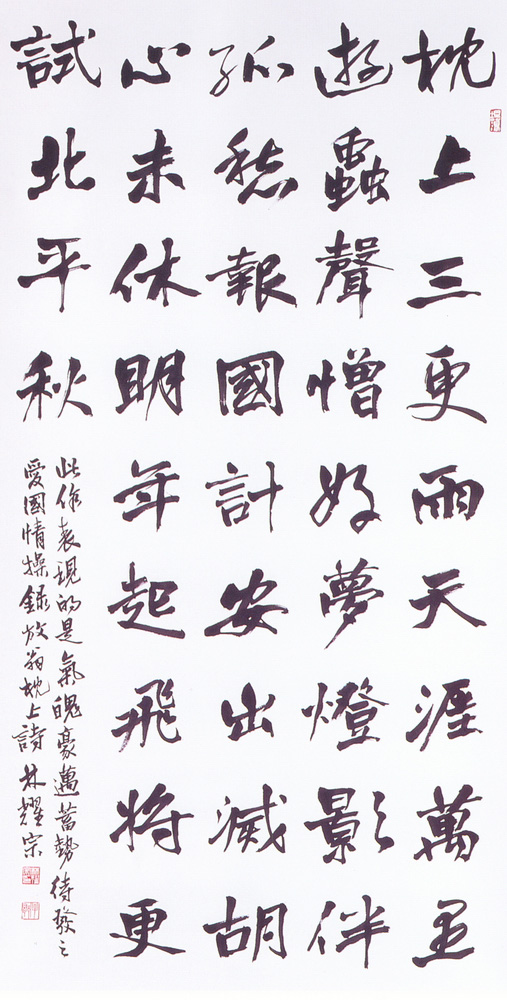 枕上三更雨天涯萬里
遊蟲聲憎好夢燈影伴
孤愁報國計安出滅胡
心未休明年起飛將更
試北平秋
此作表現的是氣魄豪邁蓄勢待發之
愛國情操錄放翁枕上詩 林耀宗